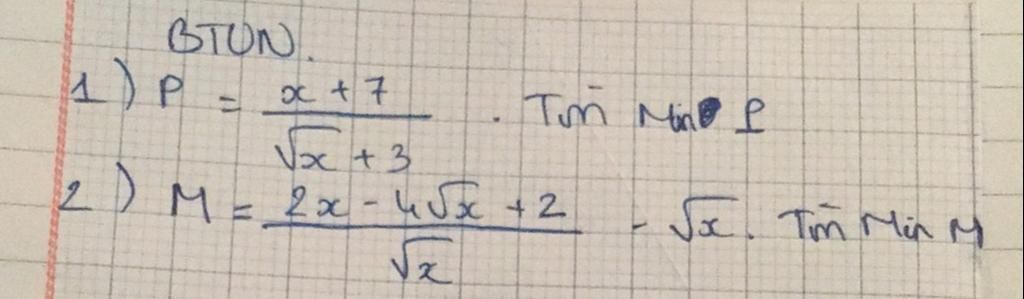 BTVN.
1) P = (x + 7)/(√x + 3) . Tìm Min P
2) M = (2x - 4√x + 2)/√x - √x. Tìm Min M